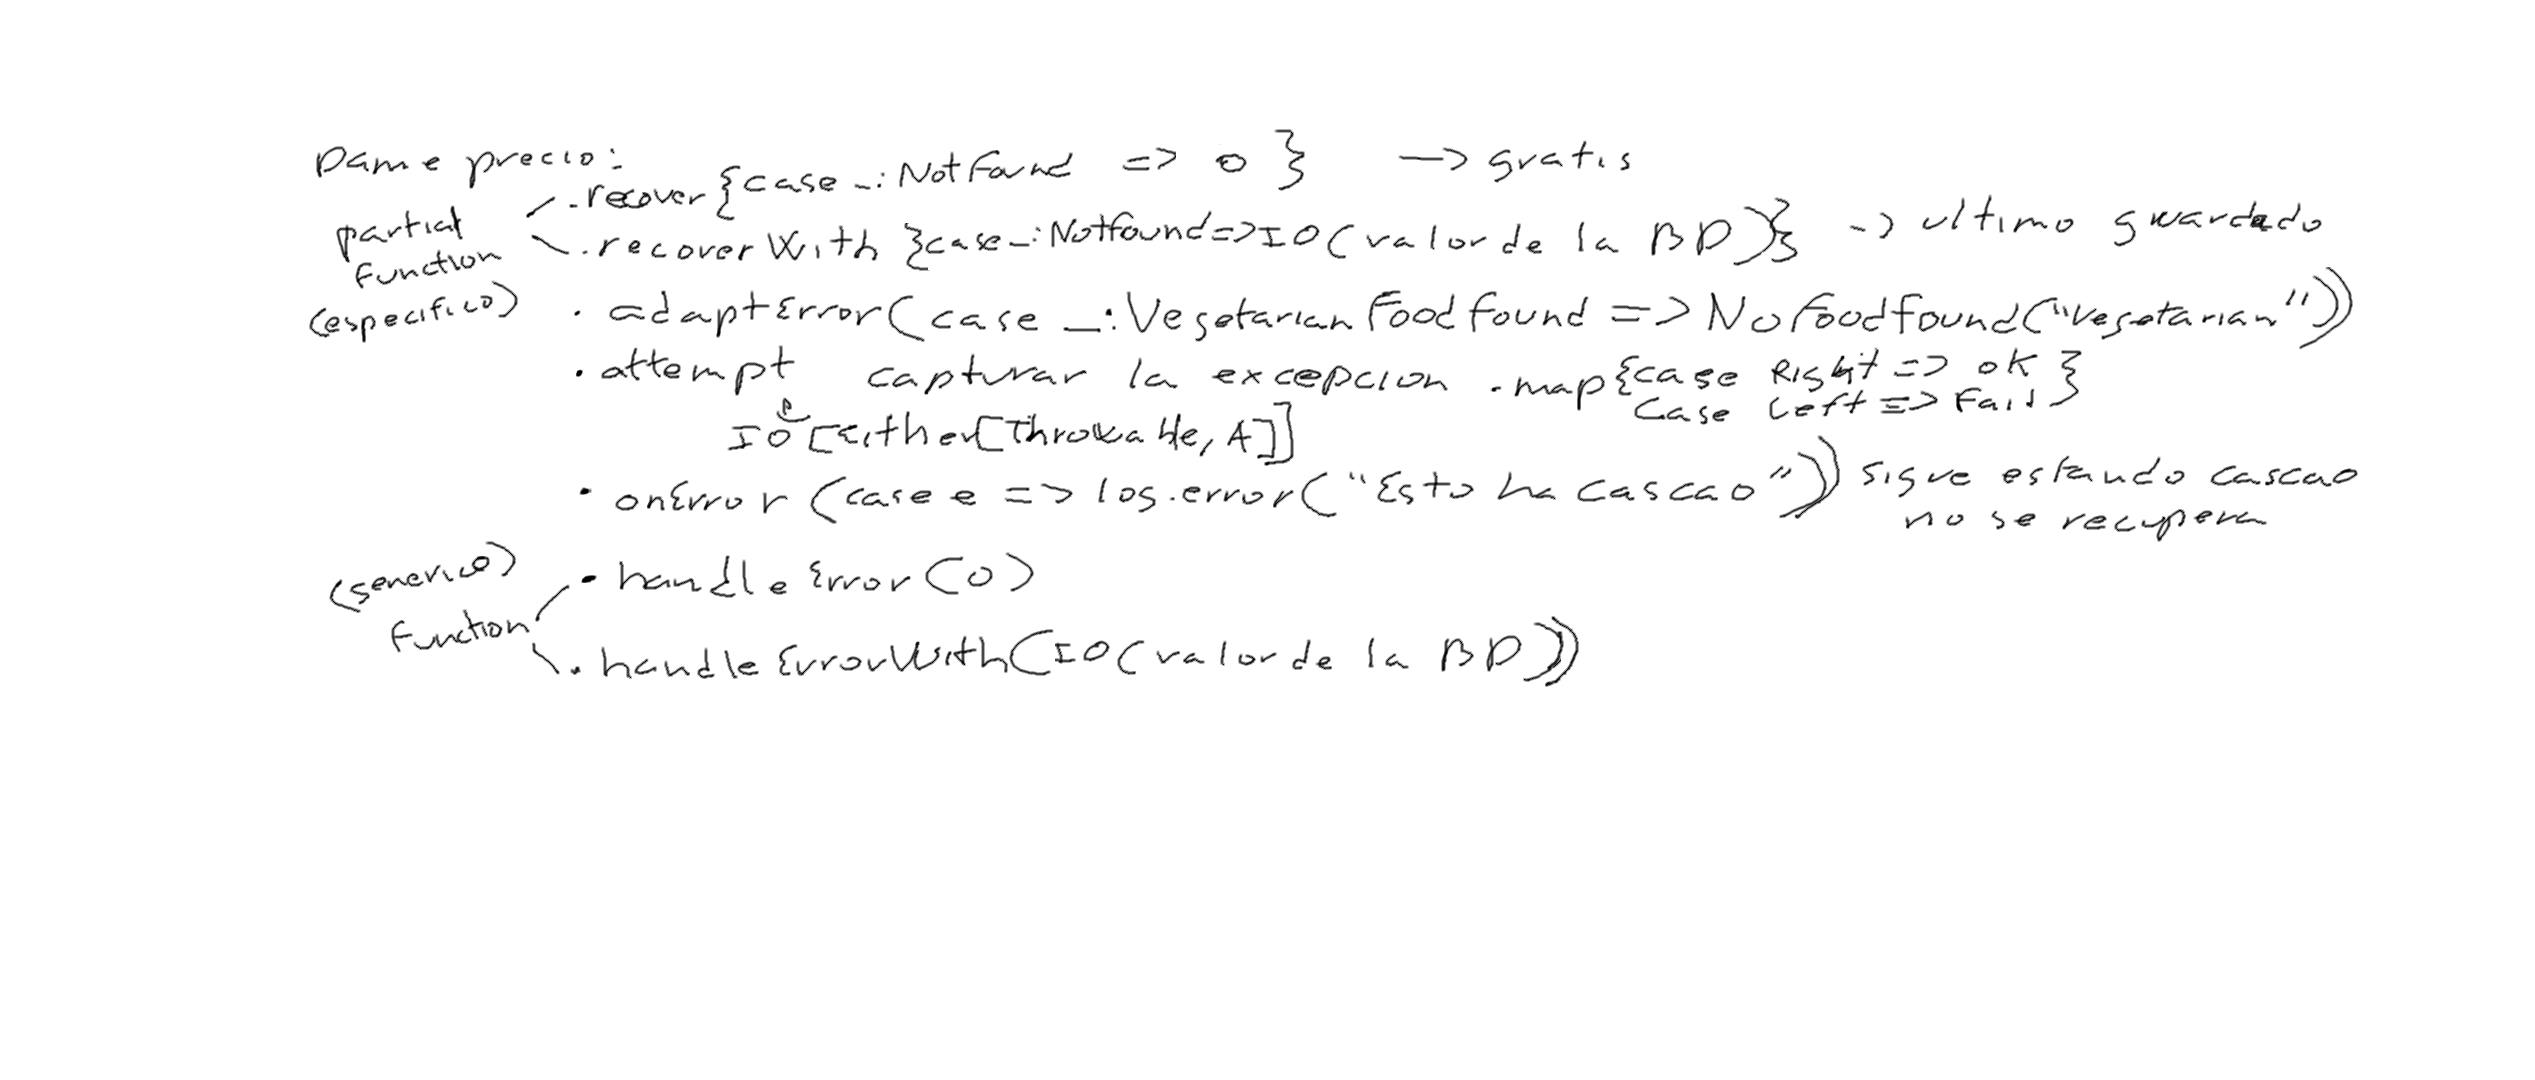 Dame precio:
.recover{case _: NotFound => 0 } -> gratis
partial
function
(especifico)
.recoverWith {case _: Notfound => IO(valor de la BD)} -> ultimo guardado
. adaptError(case _: VegetarianFoodfound => NoFoodfound("vegetarian"))
. attempt capturar la excepcion .map{case Right => ok
case Left => Fail }
IO[Either[Throwable, A]]
. onError (case e => log.error("Esto ha cascao")) sigue estando cascao
no se recupera
(generico)
function
. handleError(0)
. handleErrorWith(IO(valor de la BD))